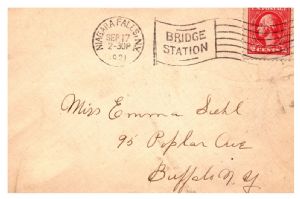 NIAGARA FALLS, N.Y.
SEP 17
2-30P
1921
BRIDGE
STATION
CENTS
Miss Emma Diehl
95 Poplar Ave
Buffalo N.Y